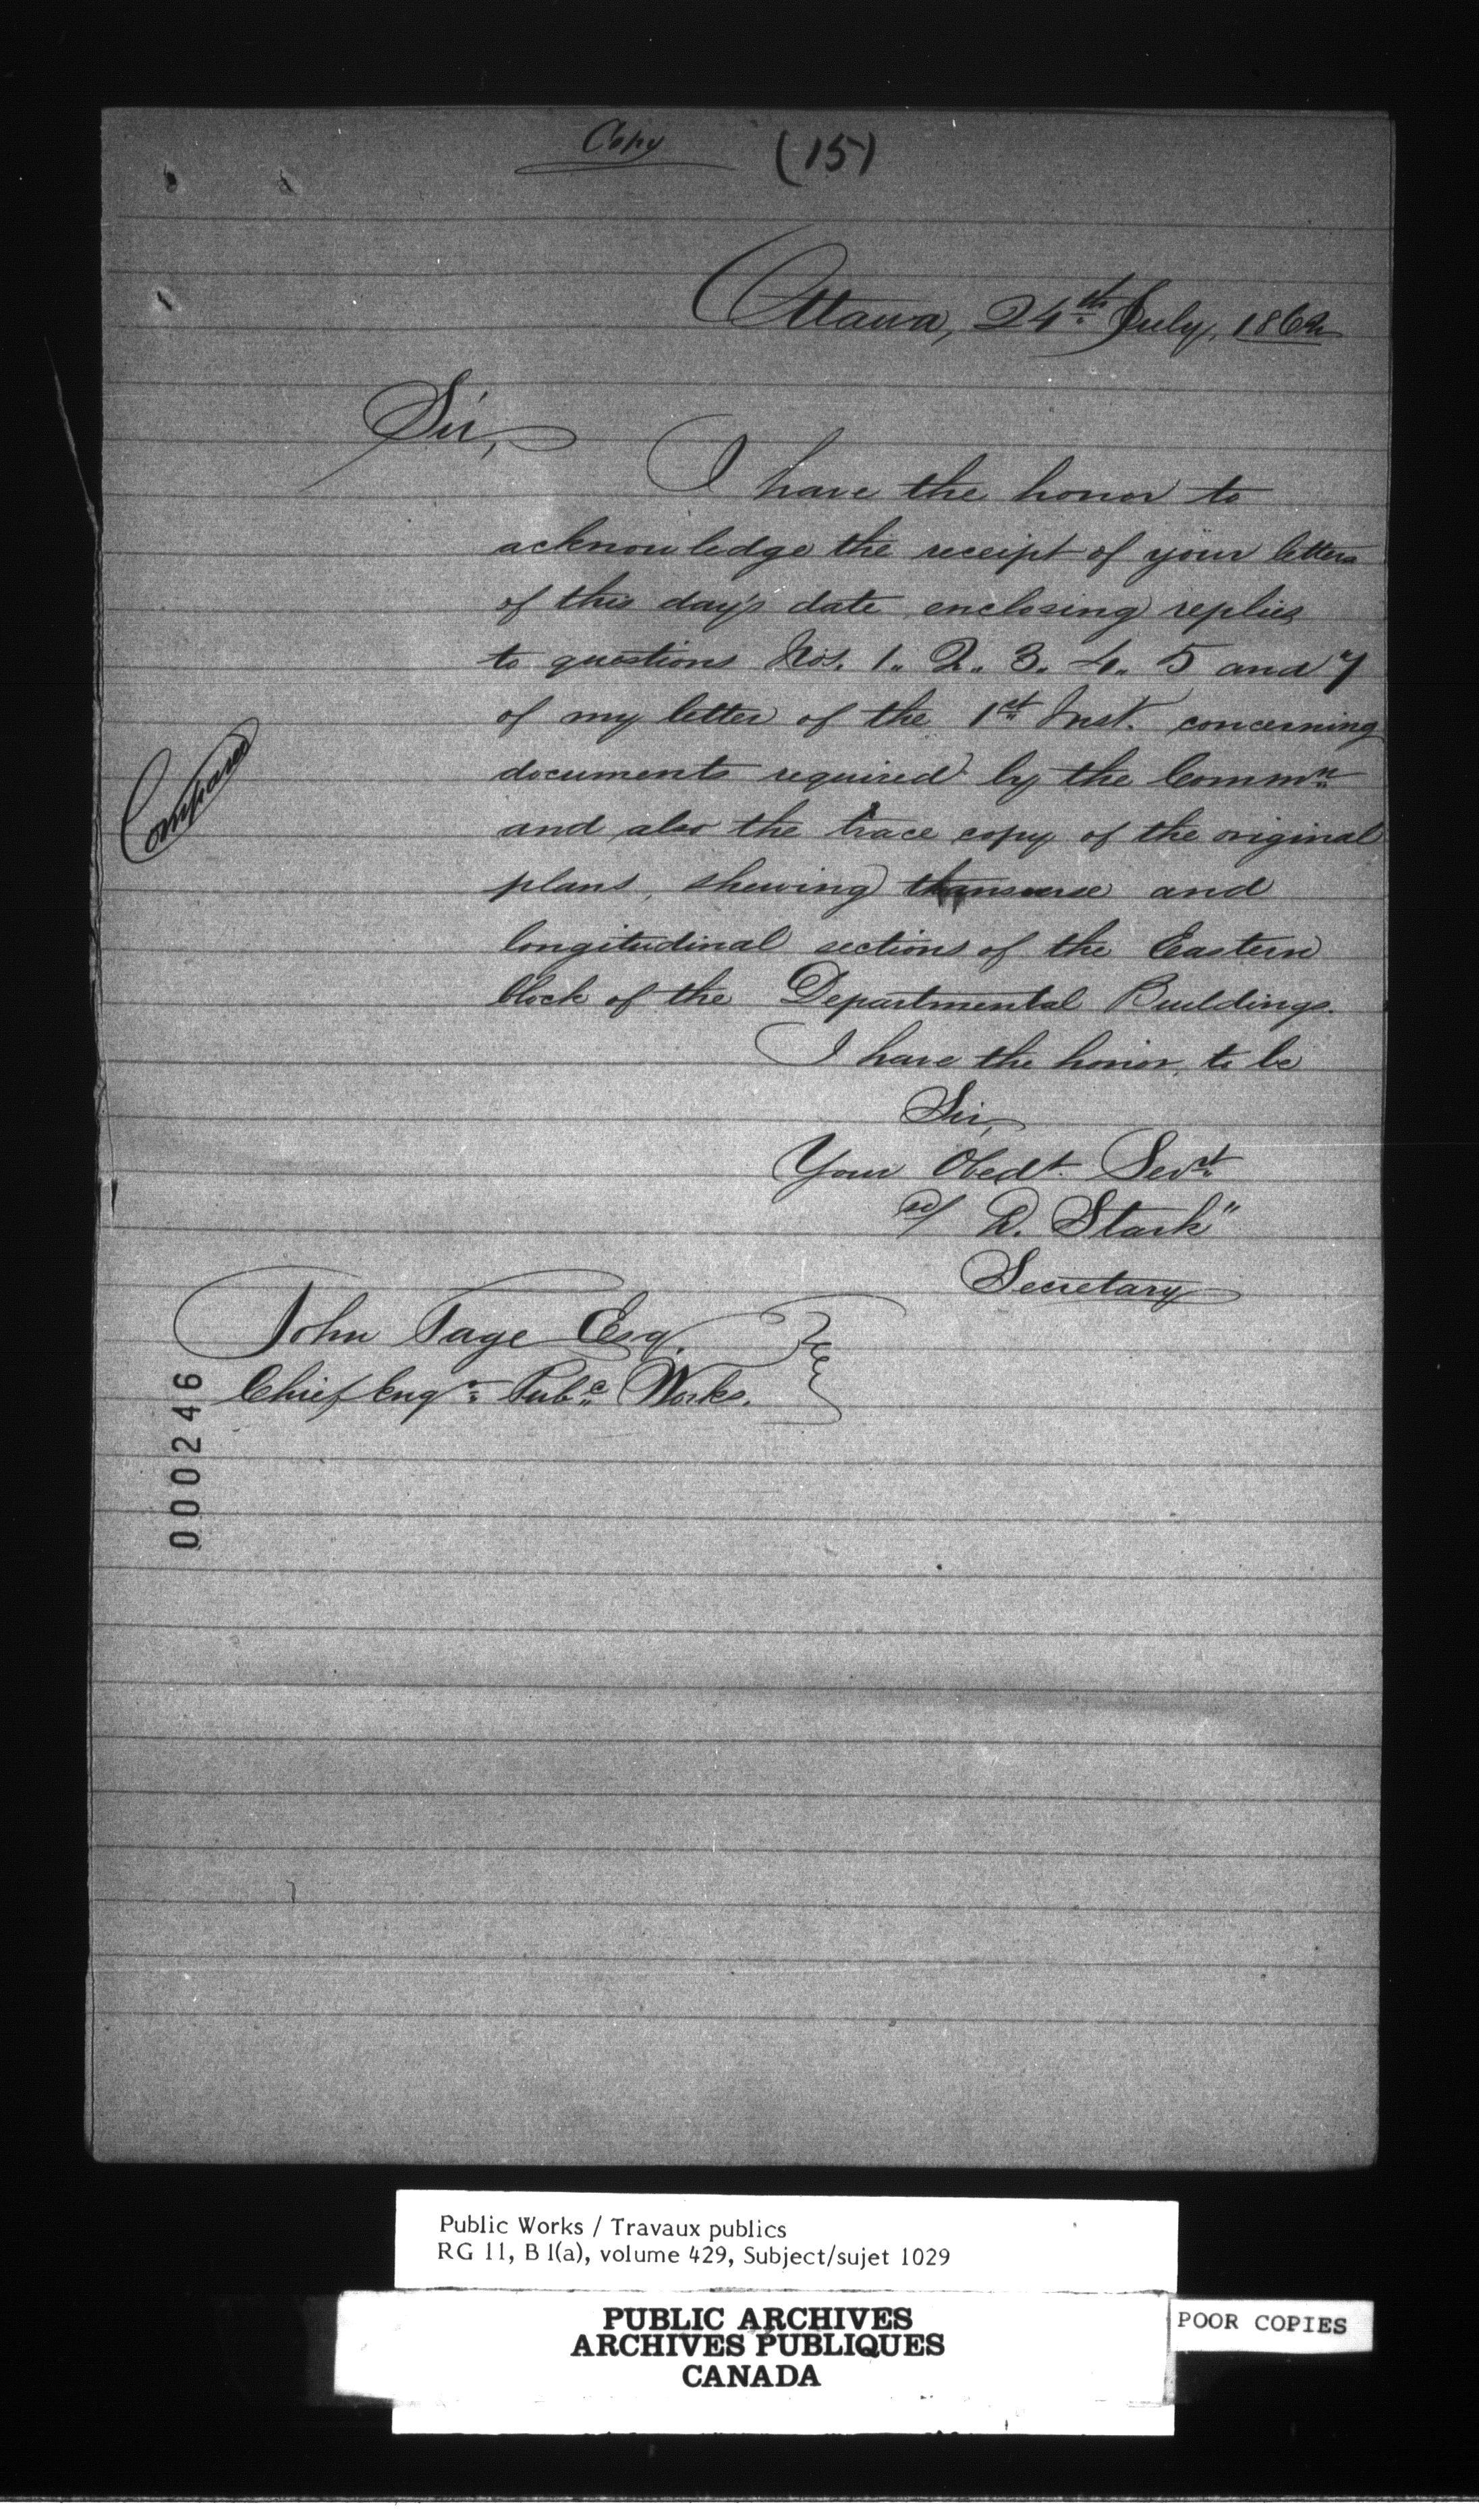 Copy (15)
Ottawa, 24th July, 1862
Sir,
I have the honor to
acknowledge the receipt of your letters
of this day's date enclosing replies
to questions Nos. 1. 2. 3. 4. 5 and 7
of my letter of the 1st Inst. concerning
documents required by the Commn
and also the trace copy of the original
plans, shewing transverse and
longitudinal sections of the Eastern
block of the Departmental Buildings.
I have the honor, to be
Sir,
Your Obedt. Servt
sd/ D. Stark"
Secretary
John Page Esq.
Chief Engr Pubc Works.
Compared
000246
Public Works / Travaux publics
RG 11, B 1(a), volume 429, Subject/sujet 1029
PUBLIC ARCHIVES
ARCHIVES PUBLIQUES
CANADA
POOR COPIES